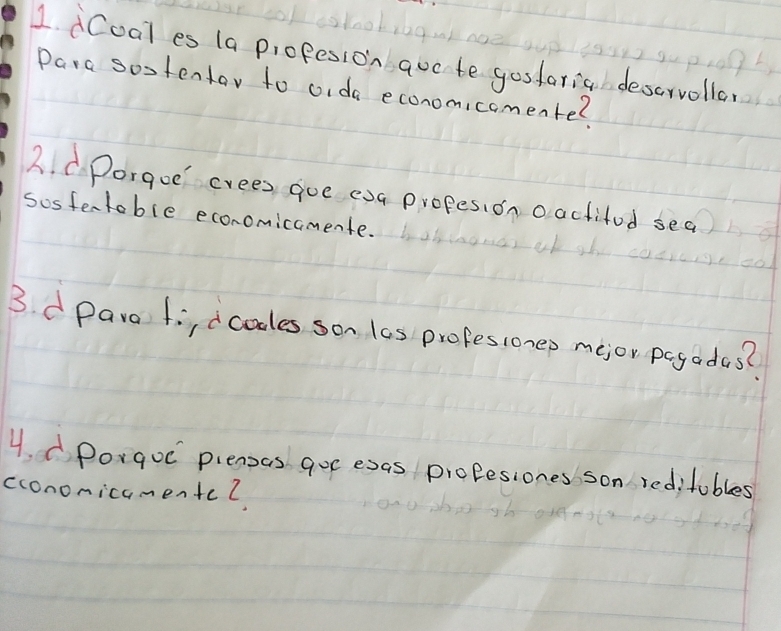 1. ¿Cual es la profesión que te gustaria desarrollar
Para sostentar tu vida economicamente?
2. ¿Porque crees que esa profesión o actitud sea
sustentable economicamente.
3. ¿Para ti, ¿cuales son las profesiones mejor pagadas?
4. ¿Porque piensas que esas profesiones son reditubles
economicamente?